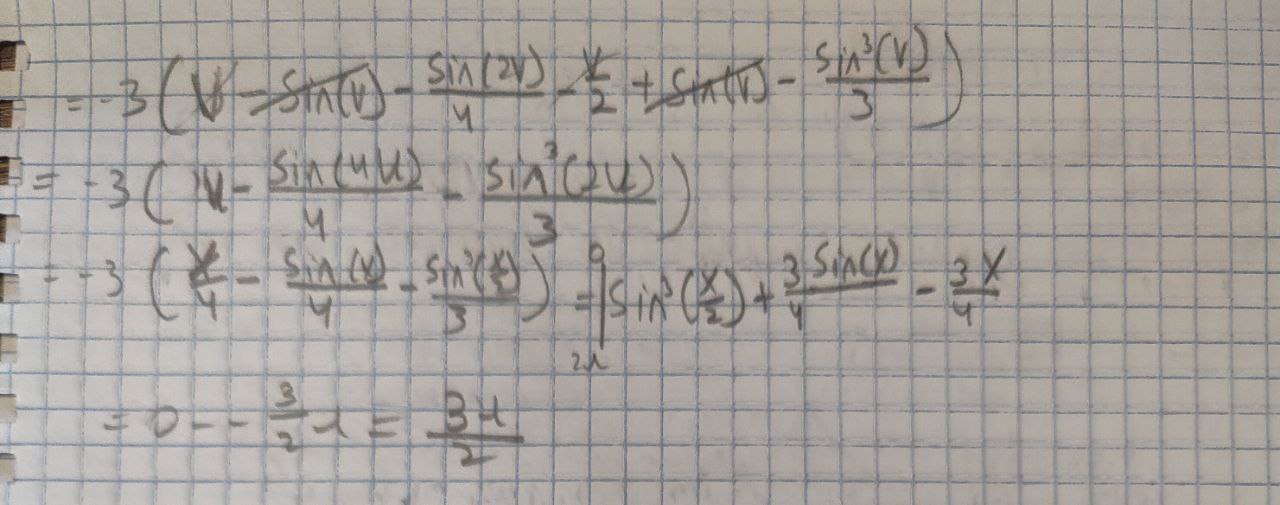 = -3 ( V - sin(V) - sin(2V)/4 - V/2 + sin(V) - sin³(V)/3 )
= -3 ( u - sin(4u)/4 - sin³(2u)/3 )
= -3 ( x/4 - sin(x)/4 - sin³(x/2)/3 ) = |₂π⁰ sin³(x/2) + 3/4 sin(x) - 3x/4
= 0 - - 3/2 π = 3π/2